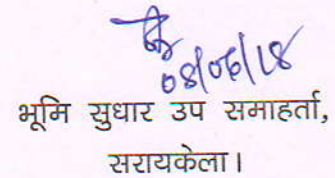 08/06/18
भूमि सुधार उप समाहर्ता,
सरायकेला।